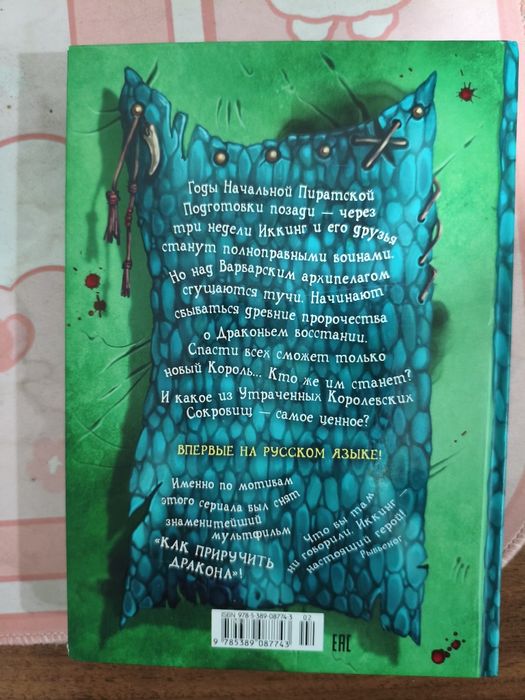 Годы Начальной Пиратской
Подготовки позади — через
три недели Иккинг и его друзья
станут полноправными воинами.
Но над Варварским архипелагом
сгущаются тучи. Начинают
сбываться древние пророчества
о Драконьем восстании.
Спасти всех сможет только
новый Король... Кто же им станет?
И какое из Утраченных Королевских
Сокровищ — самое ценное?
ВПЕРВЫЕ НА РУССКОМ ЯЗЫКЕ!
Именно по мотивам
этого сериала был снят
знаменитейший
мультфильм
«КАК ПРИРУЧИТЬ
ДРАКОНА»!
Что бы там
ни говорили, Иккинг
настоящий герой!
Рыбьеног
ISBN 978-5-389-08774-3
02
9 785389 087743
EAC